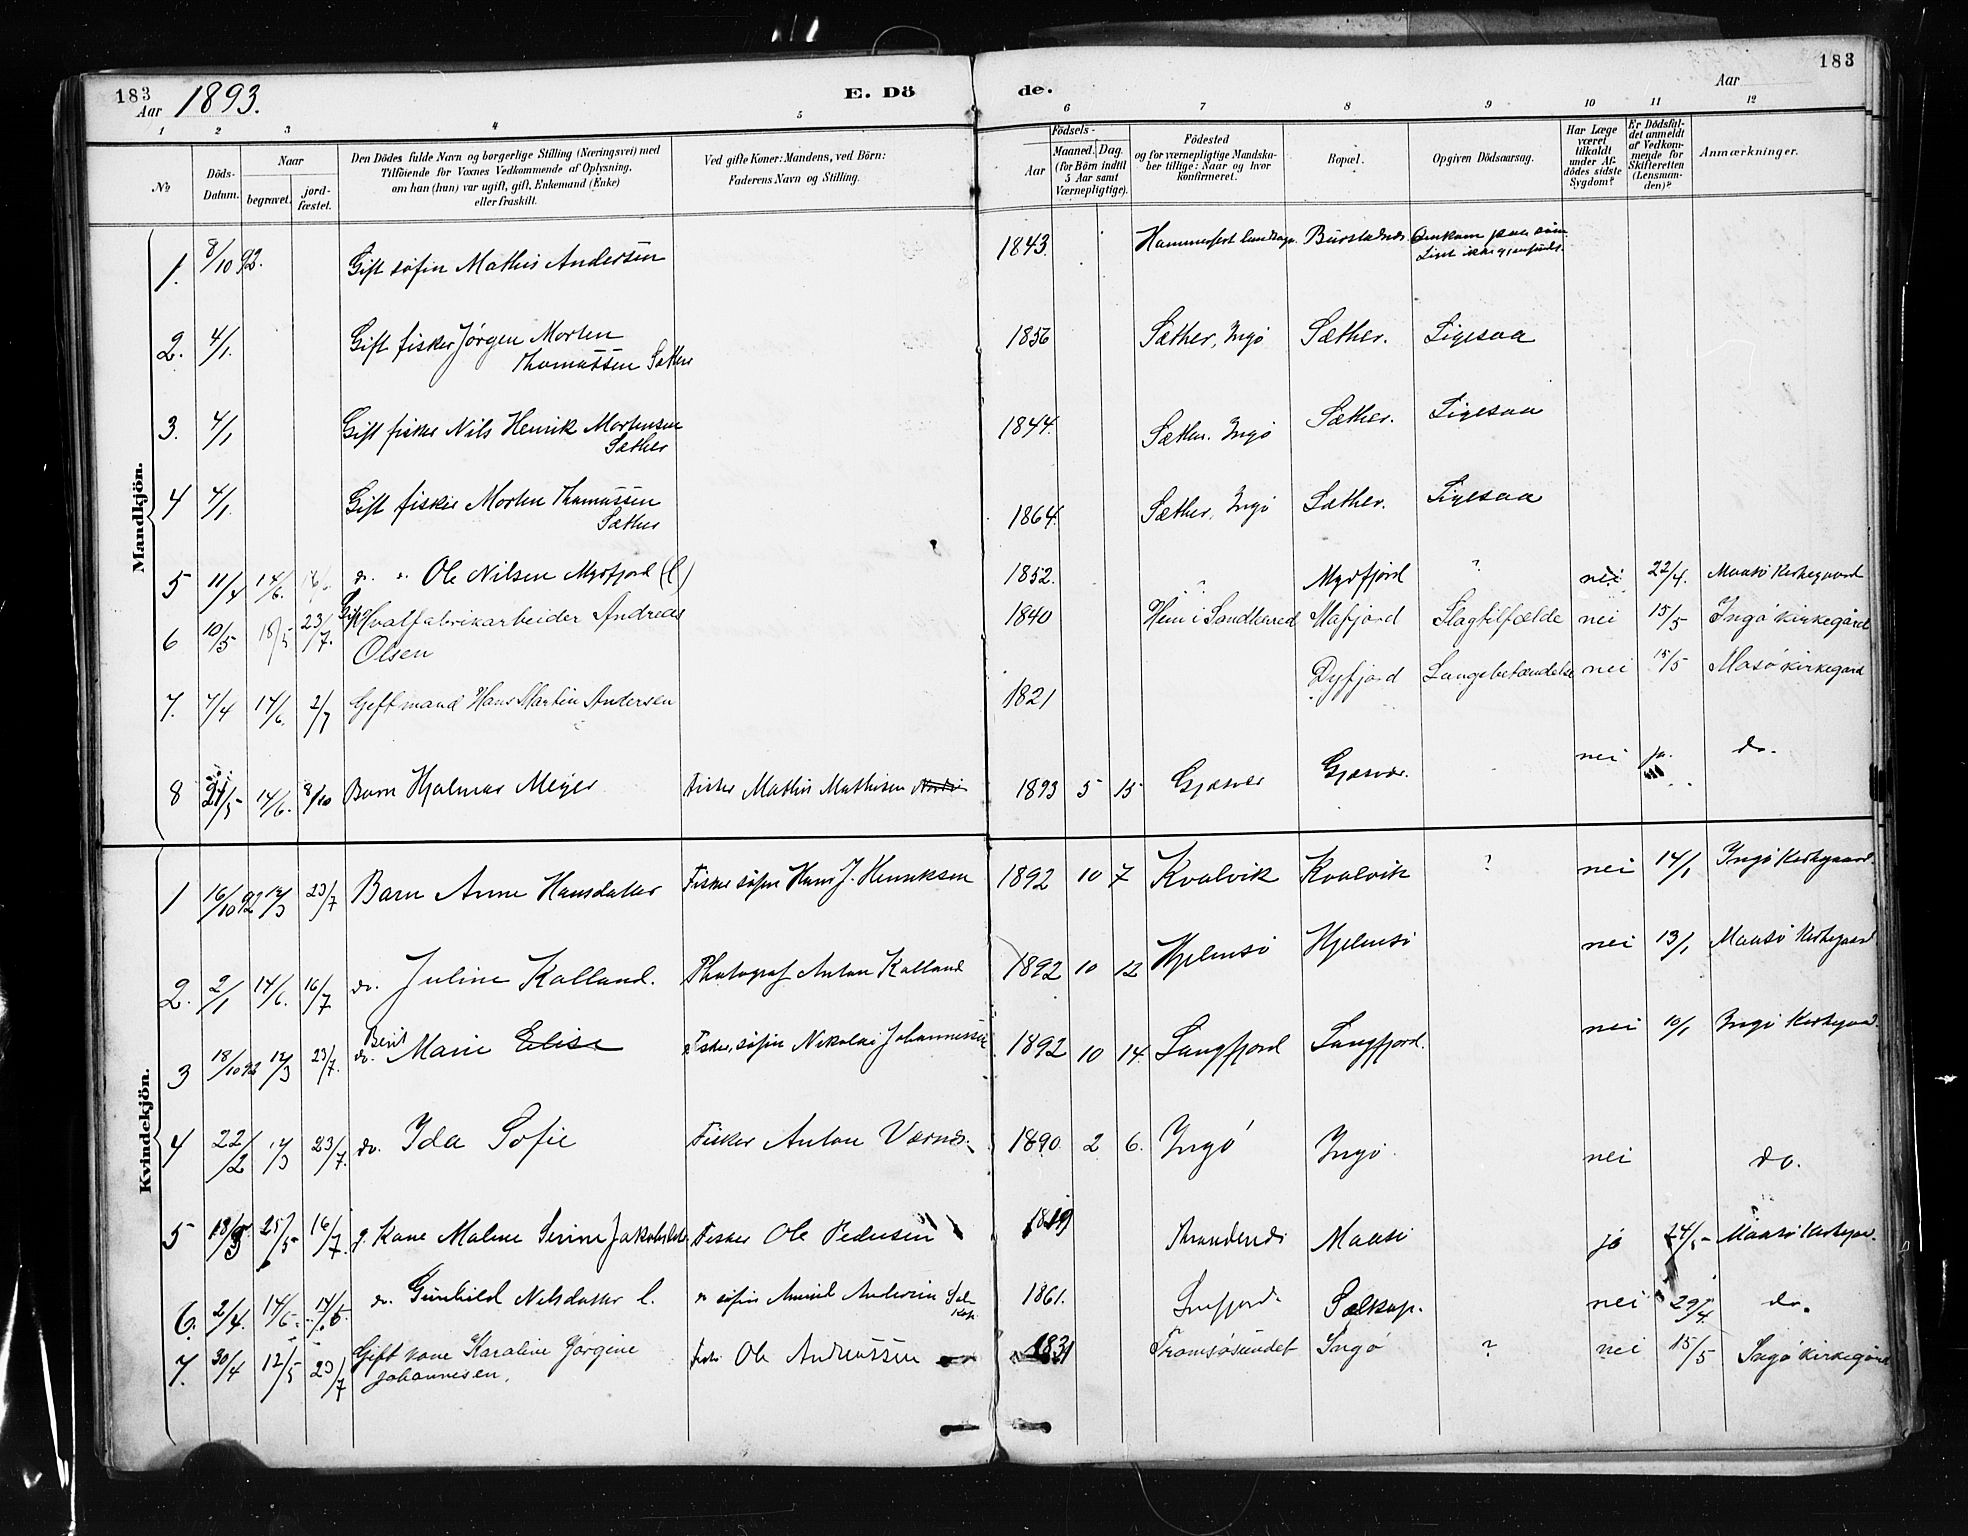 183
Aar 1893.
E. Dö
de.
Aar
183
1 2 3 4 5 6 7 8 9 10 11 12
No
Döds-Datum.
Naar
begravet.
jord-fæstet.
Den Dödes fulde Navn og borgerlige Stilling (Næringsvei) med
Tilföiende for Voxnes Vedkommende af Oplysning,
om han (hun) var ugift, gift, Enkemand (Enke)
eller fraskilt.
Ved gifte Koner: Mandens, ved Börn:
Faderens Navn og Stilling.
Födsels-
Aar
Maaned. Dag.
(for Börn indtil
5 Aar samt
Værnepligtige).
Födested
og for værnepligtige Mandska-
ber tillige: Naar og hvor
konfirmeret.
Bopæl.
Opgiven Dödsaarsag.
Har Læge
været
tilkaldt
under Af-
dödes sidste
Sygdom?
Er Dödsfal-
det anmeldt
af Vedkom-
mende for
Skifteretten
(Lensman-
den)?
Anmærkninger.
Mandkjön.
1. 8/10 92. Gift søfin Mathis Andersen 1843. Hammerfest Omkom paa
2. 4/1. Gift fisker Jørgen Morten
Thomassen Sæther 1856 Sæther, Ingø Sæther. Ligesaa
3. 4/1 Gift fisker Nils Henrik Mortensen
Sæther 1844. Sæther. Ingø Sæther. Ligesaa
4 4/1. Gift fisker Morten Thomassen
Sæther 1864. Sæther, Ingø Sæther. Ligesaa
5 11/4 14/6. do. " Ole Nilsen Myrfjord (l) 1852. ? Myrfjord ? nei 22/4. Maasø Kirkegaard
6 10/5 18/5 23/7. Gift Hvalfabrikarbeider Andreas
Olsen 1840 Hem i Sandherred Mafjord Slagtilfælde nei 15/5 Ingø Kirkegård
7. 7/4 14/6. 2/7 Gift mand Hans Martin Andersen 1821 Dyfjord Lungebetændelse nei 15/5 Masø kirkegård
8 21/5 14/6. 8/10 Barn Hjalmar Meyer Fisker Mathis Mathisen 1893 5 15 Gjæsvær Gjæsvær. nei ja. do.
Kvindekjön.
1 16/10 92 12/3 23/7 Barn Anne Hansdatter Fisker søfin Hans J. Henriksen 1892 10 7 Kvalvik Kvalvik ? nei 14/1 Ingø Kirkegaard
2. 2/1 14/6. 16/7 do. Juline Kalland. Photograf Anton Kalland 1892 10 12 Hjelmsø Hjelmsø nei 13/1 Maasø Kirkegaard
3 18/10 92 12/3 23/7. do. Berit Marie Elise Fisker, søfin Nikolai Johannessen 1892 10 14. Langfjord Langfjord. nei 10/1 Ingø Kirkegaard.
4 22/2 12/3 23/7. do. Ida Sofie Fisker Anton Værnes. 1890. 2 6. Ingø Ingø. nei do.
5 25/5 16/7. g. Kone Malene Fisker Ole Pedersen 1819 Maasø ja 24/5 Maasø Kirkegaard.
6. 2/4. 14/6. 14/6 do. Gunhild Nilsdatter l. " søfin 1861. Snefjord. nei 29/4. do.
7. 30/4 12/5 23/7 Gift kone Karoline Jørgine
Johannesen. Fisker Ole Andreassen 1831 Tromsøsundet Ingø ? nei 15/5 Ingø kirkegård